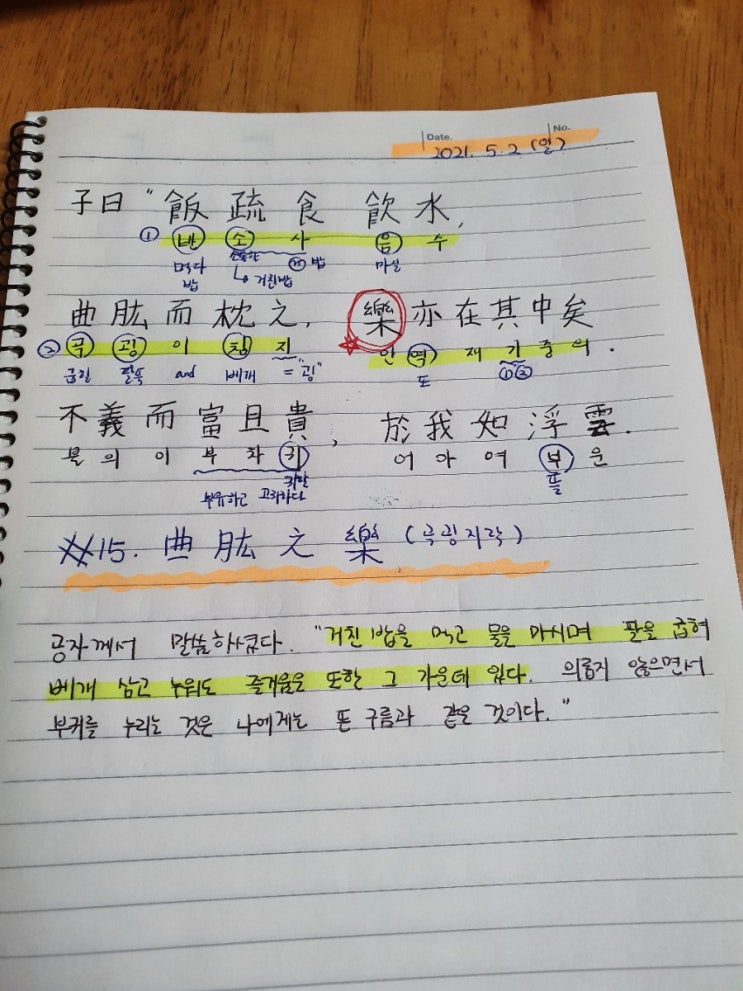 Date. No.
2021. 5. 2 (일)
子曰 "飯疏食 飮水,
① 반 소 사 음 수
먹다 밥 마실
밥 ↳ 거친밥
曲肱而枕之, 樂亦在其中矣
② 곡 굉 이 침 지 역 재 기 중 의.
굽힐 팔뚝 and 베개 = "굉" 또 ①②
不義而富且貴, 於我如浮雲.
불 의 이 부 차 귀 어 아 여 부 운
귀할 뜰
부유하고 고귀하다
#15. 曲肱之樂 (곡굉지락)
공자께서 말씀하셨다. "거친 밥을 먹고 물을 마시며 팔을 굽혀
베개 삼고 누워도 즐거움은 또한 그 가운데 있다. 의롭지 않으면서
부귀를 누리는 것은 나에게는 뜬 구름과 같은 것이다."